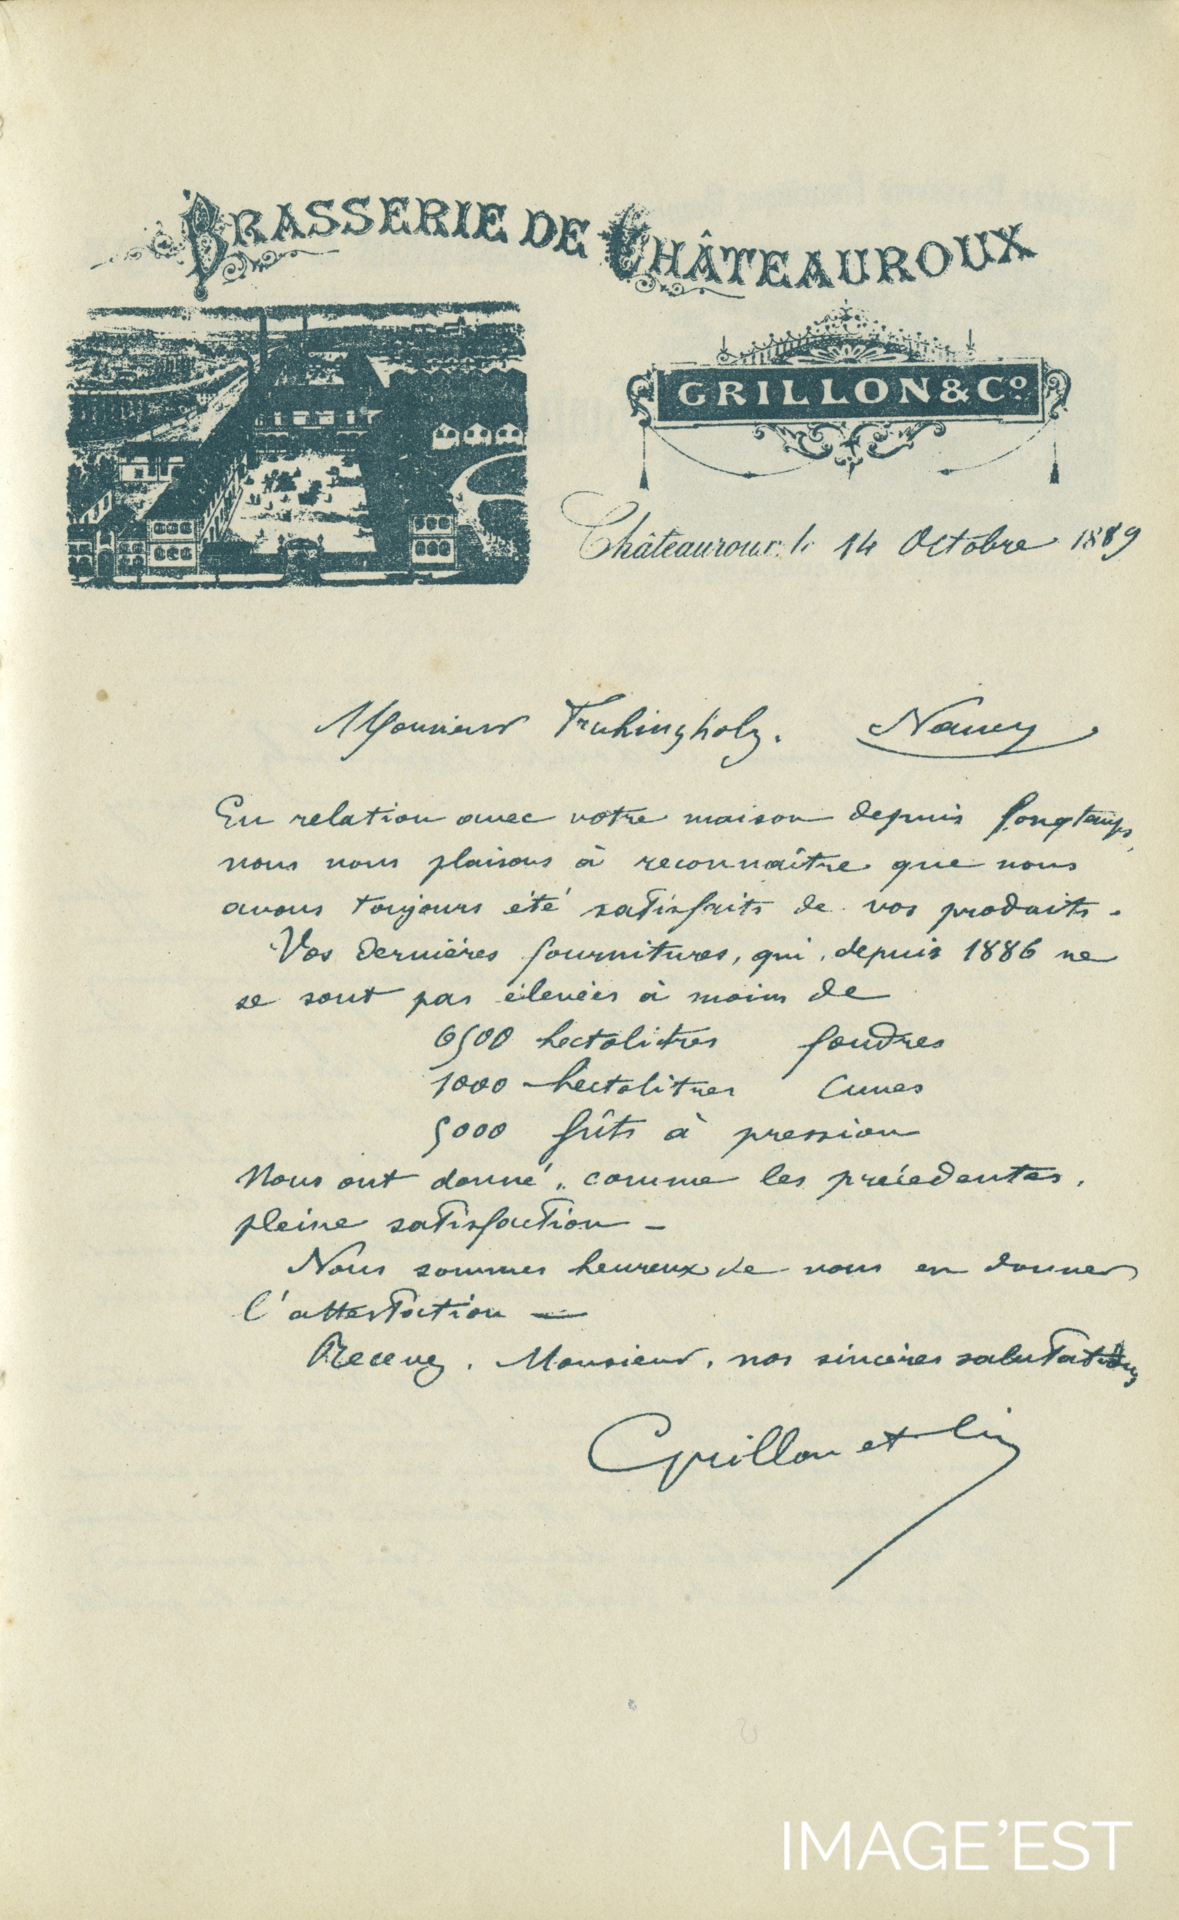 BRASSERIE DE CHÂTEAUROUX
GRILLON & Co
Châteauroux, le 14 Octobre 1889
Monsieur Fruhinsholz. Nancy
En relation avec votre maison depuis longtemps,
nous nous plaisons à reconnaître que nous
avons toujours été satisfaits de vos produits.
Vos dernières fournitures, qui, depuis 1886 ne
se sont pas élevées à moins de
6500 hectolitres foudres
1000 hectolitres cuves
5000 fûts à pression
Nous ont donné, comme les précédentes,
pleine satisfaction –
Nous sommes heureux de vous en donner
l'attestation –
Recevez, Monsieur, nos sincères salutations
Grillon et Cie
IMAGE'EST